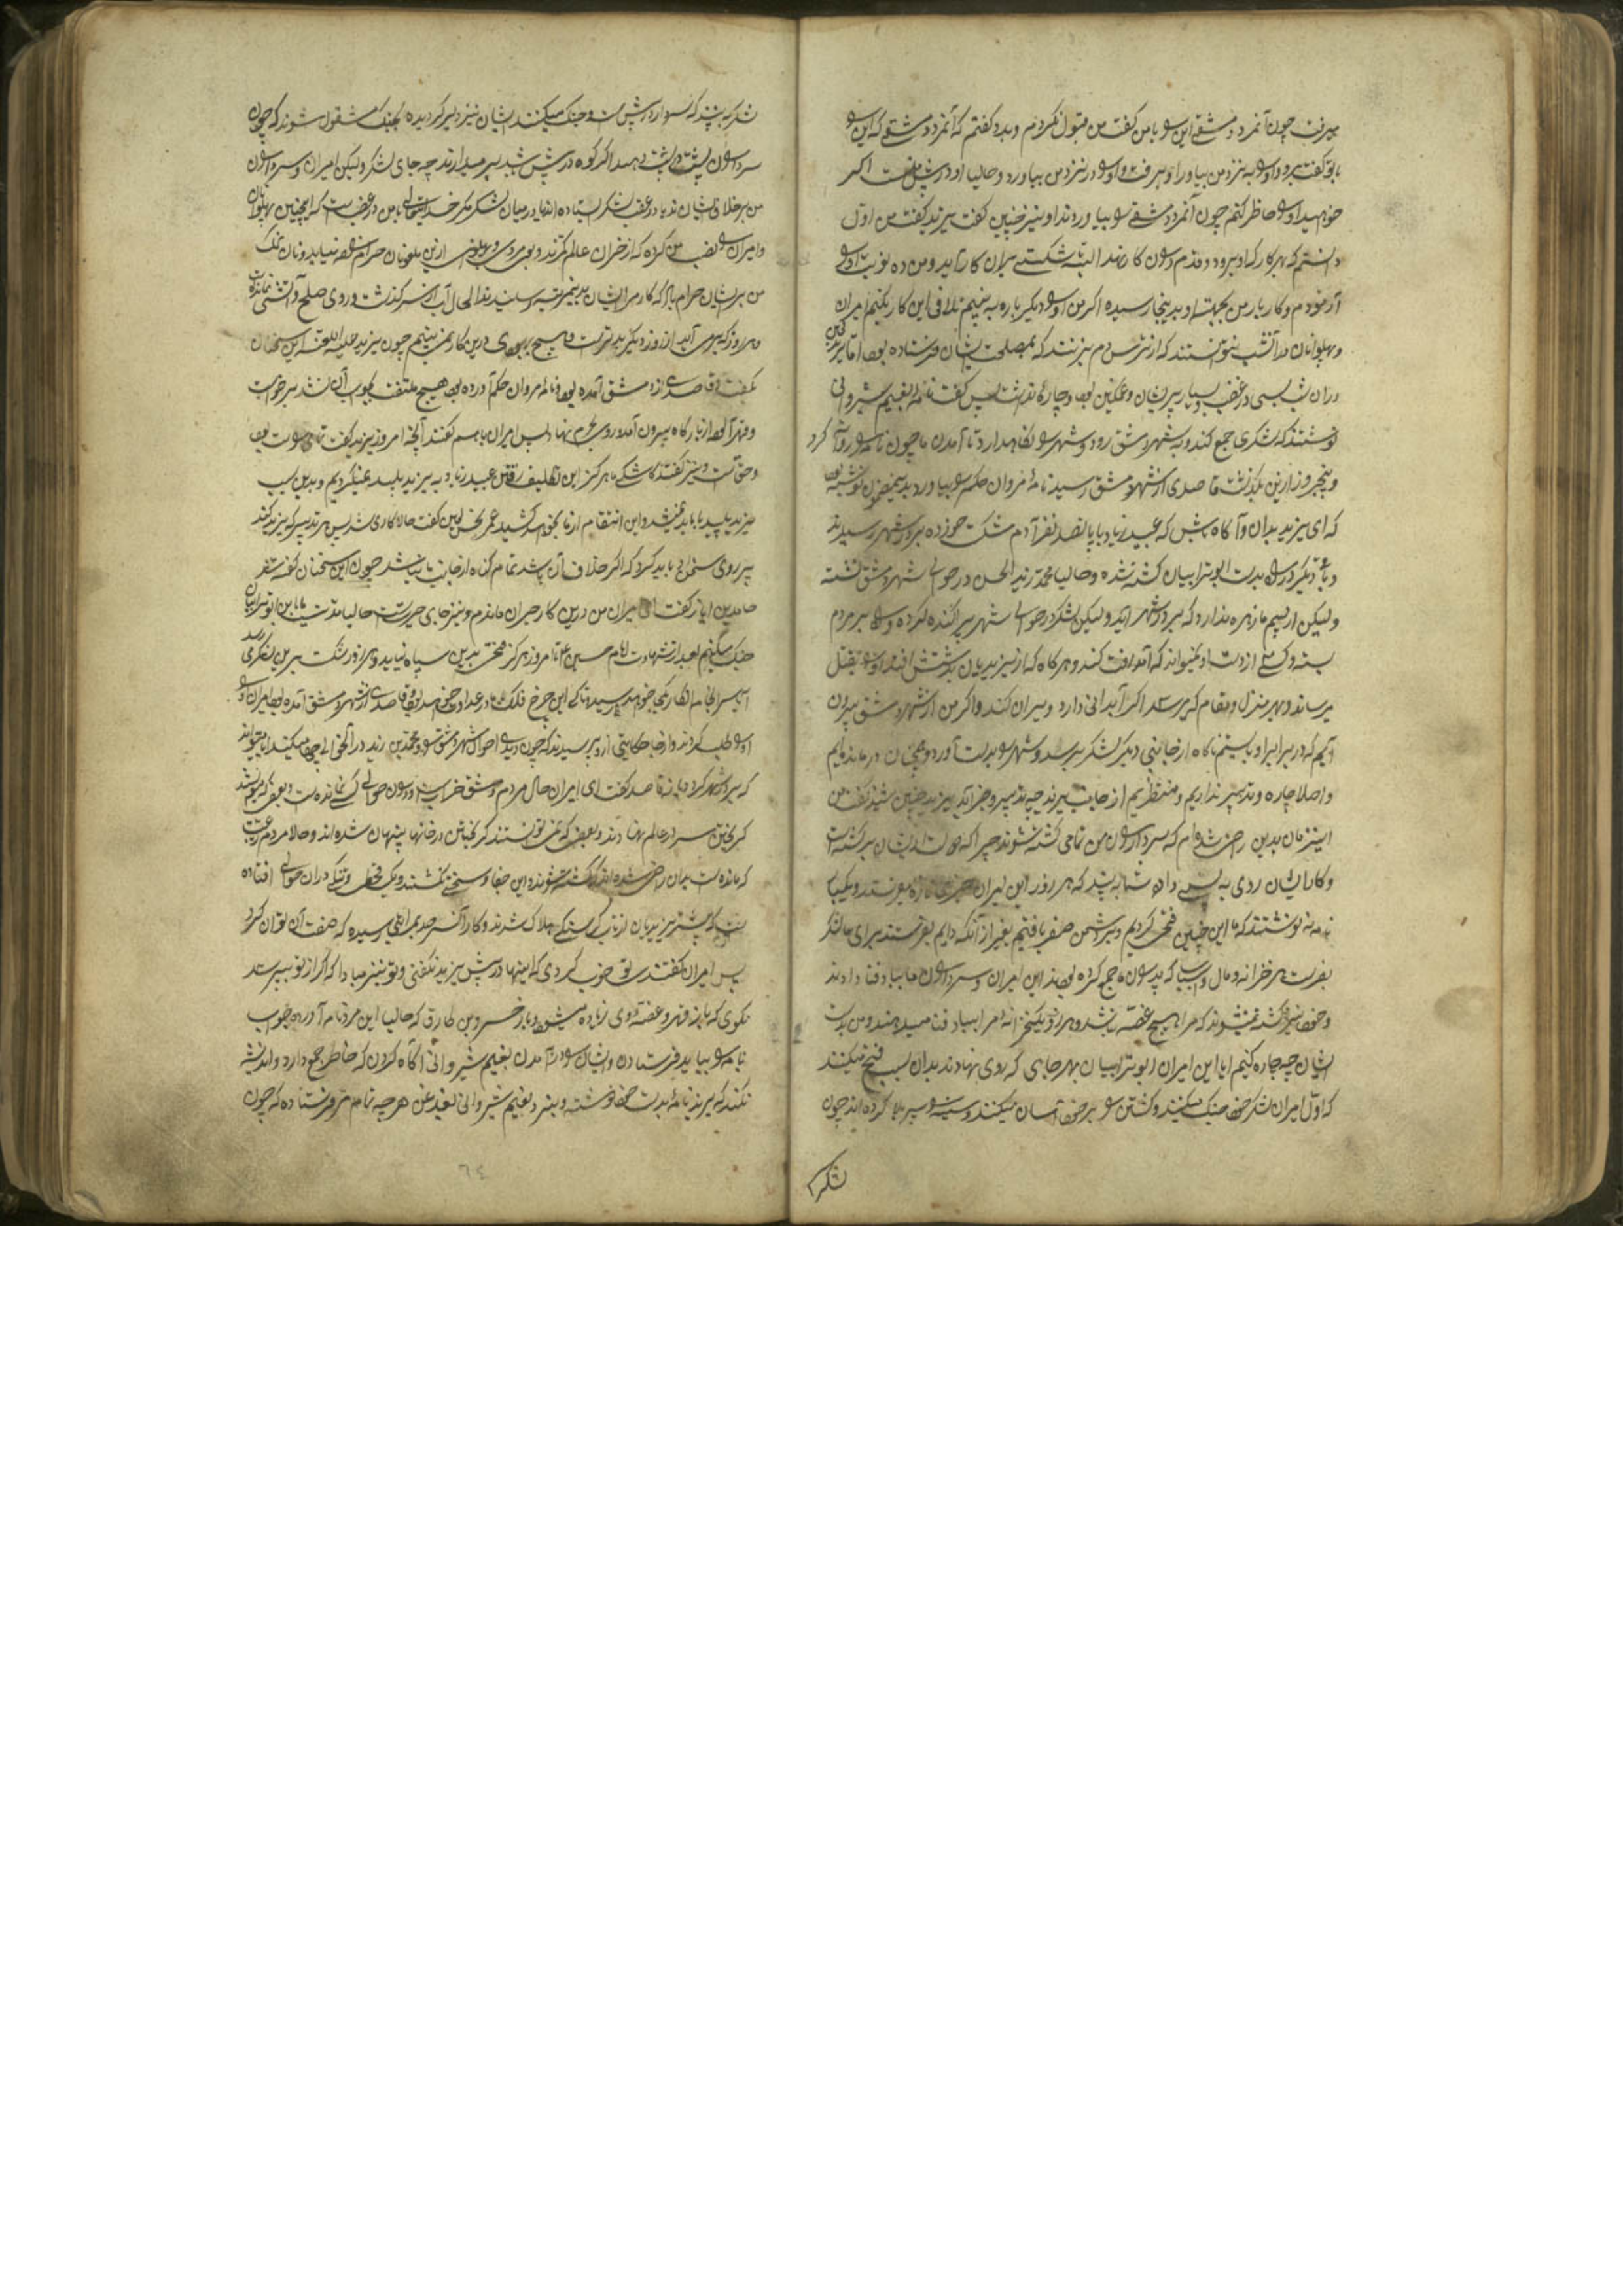 میرفت چون آنمرد دمشقی این را با من گفت من قبول نکردم و بدو گفتم که آنمرد دمشقی که این را
با تو گفت برو و او را به نزد من بیاور او برفت و او را در نزد من بیاورد و حالیا او در پیش منست اگر
خواهید او را حاظر کنم چون آنمرد دمشقی را بیاوردند او نیز چنین گفت یزید گفت من اول
دانستم که بهر کار که او برود و قدم درون کار نهد البته شکستی بر آن کار آید و من ده نوبت او را
آزمودم و کار بار من بجهت او بدینجا رسیده اگر من او را دیگر باره به بینم تلافی این کار بکنم امیران
و پهلوانان در آنشب نتوانستند که از ترس دم بزنند که بمصلحت ایشان فرستاده بود اما یزید
در آن شب بسی در غضب و بسیار پریشان و غمگین بود و چاره نداشت پس گفت نامه بغیم شیروانی
نوشتند که لشکری جمع کند و به شهر دمشق رود و شهر را نگاهدارد تا آمدن ما چون نامه را روانه کرد
و پنجروز ازین بگذشت قاصدی از شهر دمشق رسید نامه مروان حکم را بیاورد بدینمضمون نوشته بود
که ای یزید بدان و آگاه باش که عبید زیاد با پانصد نفر آدم شکست خورده بدر شهر رسیدند
و باقی دیگر در بدست ابوترابیان کشته شده و حالیا محمد زید الحسن در حوالی شهر دمشق نشسته
ولیکن از بیم ما زهره ندارد که بدر شهر آید ولیکن لشکر در حوالی شهر پراکنده کرده و راه بر مردم
بسته و کسی از دست او نمیتواند که آمد رفت کند و هر گاه که از یزیدیان بدستش افتد او را بقتل
میرساند و بهر منزل و مقام که میرسد اگر آبدانی دارد ویران کند و اگر من از شهر دمشق بیرون
آیم که در برابر او بایستم ناگاه از جانبی دیگر لشکر برسد و شهر را بدست آورد و همچنان درمانده‌ایم
و اصلا چاره و تدبیر نداریم و منتظریم از جانب یزید چه تدبیر و خبر آید یزید چنین شنید گفت من
اینزمان بدین راضی شده‌ام که سرداران من تمامی کشته نشوند چرا که دولت از ایشان برگشته است
و کار ایشان روی به پستی داده شما به بینید که هر روز این امیران خبری تازه میفرستند و یکبار
نامه نه نوشتند که ما این چنین فتحی کردیم و بر دشمن ظفر یافتیم بغیر از آنکه دایم بفرستند برای ما لشکر
بفرست هر خزانه و مال و اسباب که پدران ما جمع کرده بودند این امیران و سرداران ما بباد فنا دادند
و خود نیز کشته نمیشوند که مرا هیچ غصه نباشد و هر روز یکخزانه مرا بباد فنا میدهند و من بدست
ایشان چه چاره کنم اما این امیران ابوترابیان بهر جای که روی نهادند بدان سبب فتح میکنند
که اول امیران لشکر خود جنگ میکنند و کشتن را بر خود آسان میکنند و سینه را سپر بلا کرده‌اند چون
لشکر
لشکر به بینند که سردار در پیش است و جنگ میکند ایشان نیز دلیر گردیده بجنگ مشغول شوند که چون
سرداران پشت در پشت بدهند اگر کوه در پیش باشد برمیدارند چه جای لشکر ولیکن امیران و سرداران
من بر خلاف ایشانند یا در عقب لشکر ایستاده‌اند یا در میان لشکر مگر خدایتعالی با من در غضب است که اینچنین پهلوانان
و امیران را نصیب من کرده که از خران عالم کمترند و بوی مردی و پهلوانی ازین ملعونان حرامزاده نیاید و نان نمک
من بر ایشان حرام باد که کار مرا ایشان بدینمرتبه رسانیدند الحال آب از سر گذشت و روی صلح و آشتی نمانده
هر روز که برمی آید از روز دیگر بدتر است و هیچ بهبودی درین کار نمی بینم چون یزید علیه اللعنه این سخنان
بگفت و قاصدی از دمشق آمده بود و نامه مروان حکم آورده بود هیچ ملتفت بجواب آن نشد برخواست
و قهرآلود از بارگاه بیرون آمد و روی بحرم نهاد پس امیران باهم گفتند آنچه امروز یزید گفت تمامی راست بود
و حق آنست و نیز گفتند کاشکی ما هرگز این تکلیف رفتن عبید زیاد به یزید پلید نمیکردیم و بدین سبب
یزید پلید با ما بد نمیشد و این انتقام از ما بخواهد کشید عمر بن حسین گفت حالا کاری شد پس هر تدبیر که یزید کند
پیروی سخن او باید کرد که اگر خلاف آن باشد تمام گناه از جانب ما باشد چون این سخنان گفته شد
حامدین ایاز گفت ای امیران من درین کار حیران ماندم و نیز جای حیرتست حالیا مدتیست ما با این ابوترابیان
جنگ میکنیم بعد از شهادت امام حسین ع تا امروز هرگز فتحی بدین سپاه نیاید و هر روز شکست بر این لشکر می رسد
آیا سرانجام کار بکجا خواهد رسید تا کی این چرخ فلک با ما در عداوت خواهد بود و قاصدی از شهر دمشق آمده بود امیران او را
او را طلب کردند و از هر جا حکایتی از او پرسیدند که چون دیدی احوال شهر دمشق را و محمد بن زید در آنحوالی چها میکند آیا میتواند
که بدر شهر گردد یا نه قاصد گفت ای امیران حال مردم دمشق خرابست و در آن حوالی کسی نمانده است و بعضی که میتوانستند
گریختن سر در عالم نهادند و بعضی که نمی توانستند گریختن در خانها پنهان شده‌اند و حالا مردم رعیت
که مانده است بدان راضی شده‌اند که کشته شوند و این جفا و سختی نکشند و یک قحطی و تنگی در آن حوالی افتاده
است که بیشتر یزیدیان از تاب گرسنگی هلاک شدند و کار آنسرحد بجایی رسیده که صفت آن نتوان کرد
پس امیران گفتند که تو خوب کردی که اینها در پیش یزید نگفتی و تو نیز مبادا که اگر از تو بپرسد
نگوی که باز قهر و غصه وی زیاده میشود و باز خسرو بن طارق که حالیا این مرد نامه آورده جواب
نامه را بباید فرستادن و ایشان را از آمدن بغیم شیروانی آگاه کردن که خاطر جمع دارد و اندیشه
نکند که یزید نامه بدست خود نوشته و بنزد بغیم شیروانی لعنه علیه هر چه تمامتر فرستاده که چون
٦٤